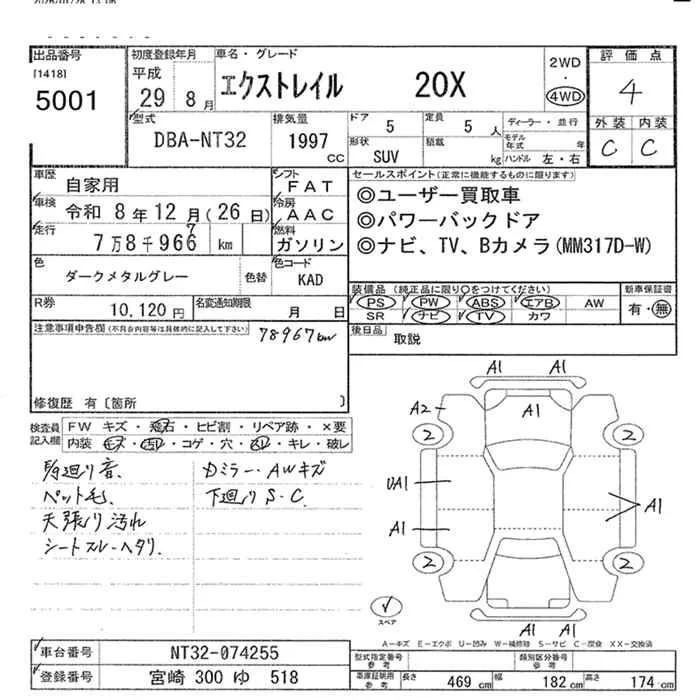 出品番号 初度登録年月 車名・グレード 評価点
[1418] 平成 2WD
5001 29 8月 エクストレイル 20X ・ 4WD 4
型式 排気量 ドア 5 定員 5 人 ディーラー・並行 外装 内装
DBA-NT32 1997 CC 形状 SUV 積載 kg モデル年式 年 C C
ハンドル 左・右
車歴 自家用 シフト FAT セールスポイント(正常に機能するものに限ります)
車検 令和 8年 12月 (26日) 冷房 AAC ◎ユーザー買取車
走行 7万8千966 7 km 燃料 ガソリン ◎パワーバックドア
◎ナビ、TV、Bカメラ(MM317D-W)
色 ダークメタルグレー 色替 色コード KAD
装備品 (純正品に限り○をつけてください) 新車保証書
PS PW ABS エアB AW 有・無
SR ナビ TV カワ
R券 10,120円 名変通知期限 月 日
後日品 取説
注意事項申告欄(不具合内容等は具体的に記入して下さい) 78967km
修復歴 有〔箇所 〕
検査員記入欄 FW キズ・飛石・ヒビ割・リペア跡・×要
内装 キズ・汚れ・コゲ・穴・スレ・キレ・破レ
ペット毛 下廻りS・C
天張り汚れ
シートスレ・ヘタリ
A1 A1
A1
A2
2 2
UA1 A1
A1
2 2
スペア
A1 A1
A-キズ E-エクボ U-凹み W-補修跡 S-サビ C-腐食 XX-交換済
車台番号 NT32-074255 型式指定番号 参考 類別区分番号 参考
登録番号 宮崎 300 ゆ 518 車庫証明用 参考 長さ 469 cm 幅 182 cm 高さ 174 cm